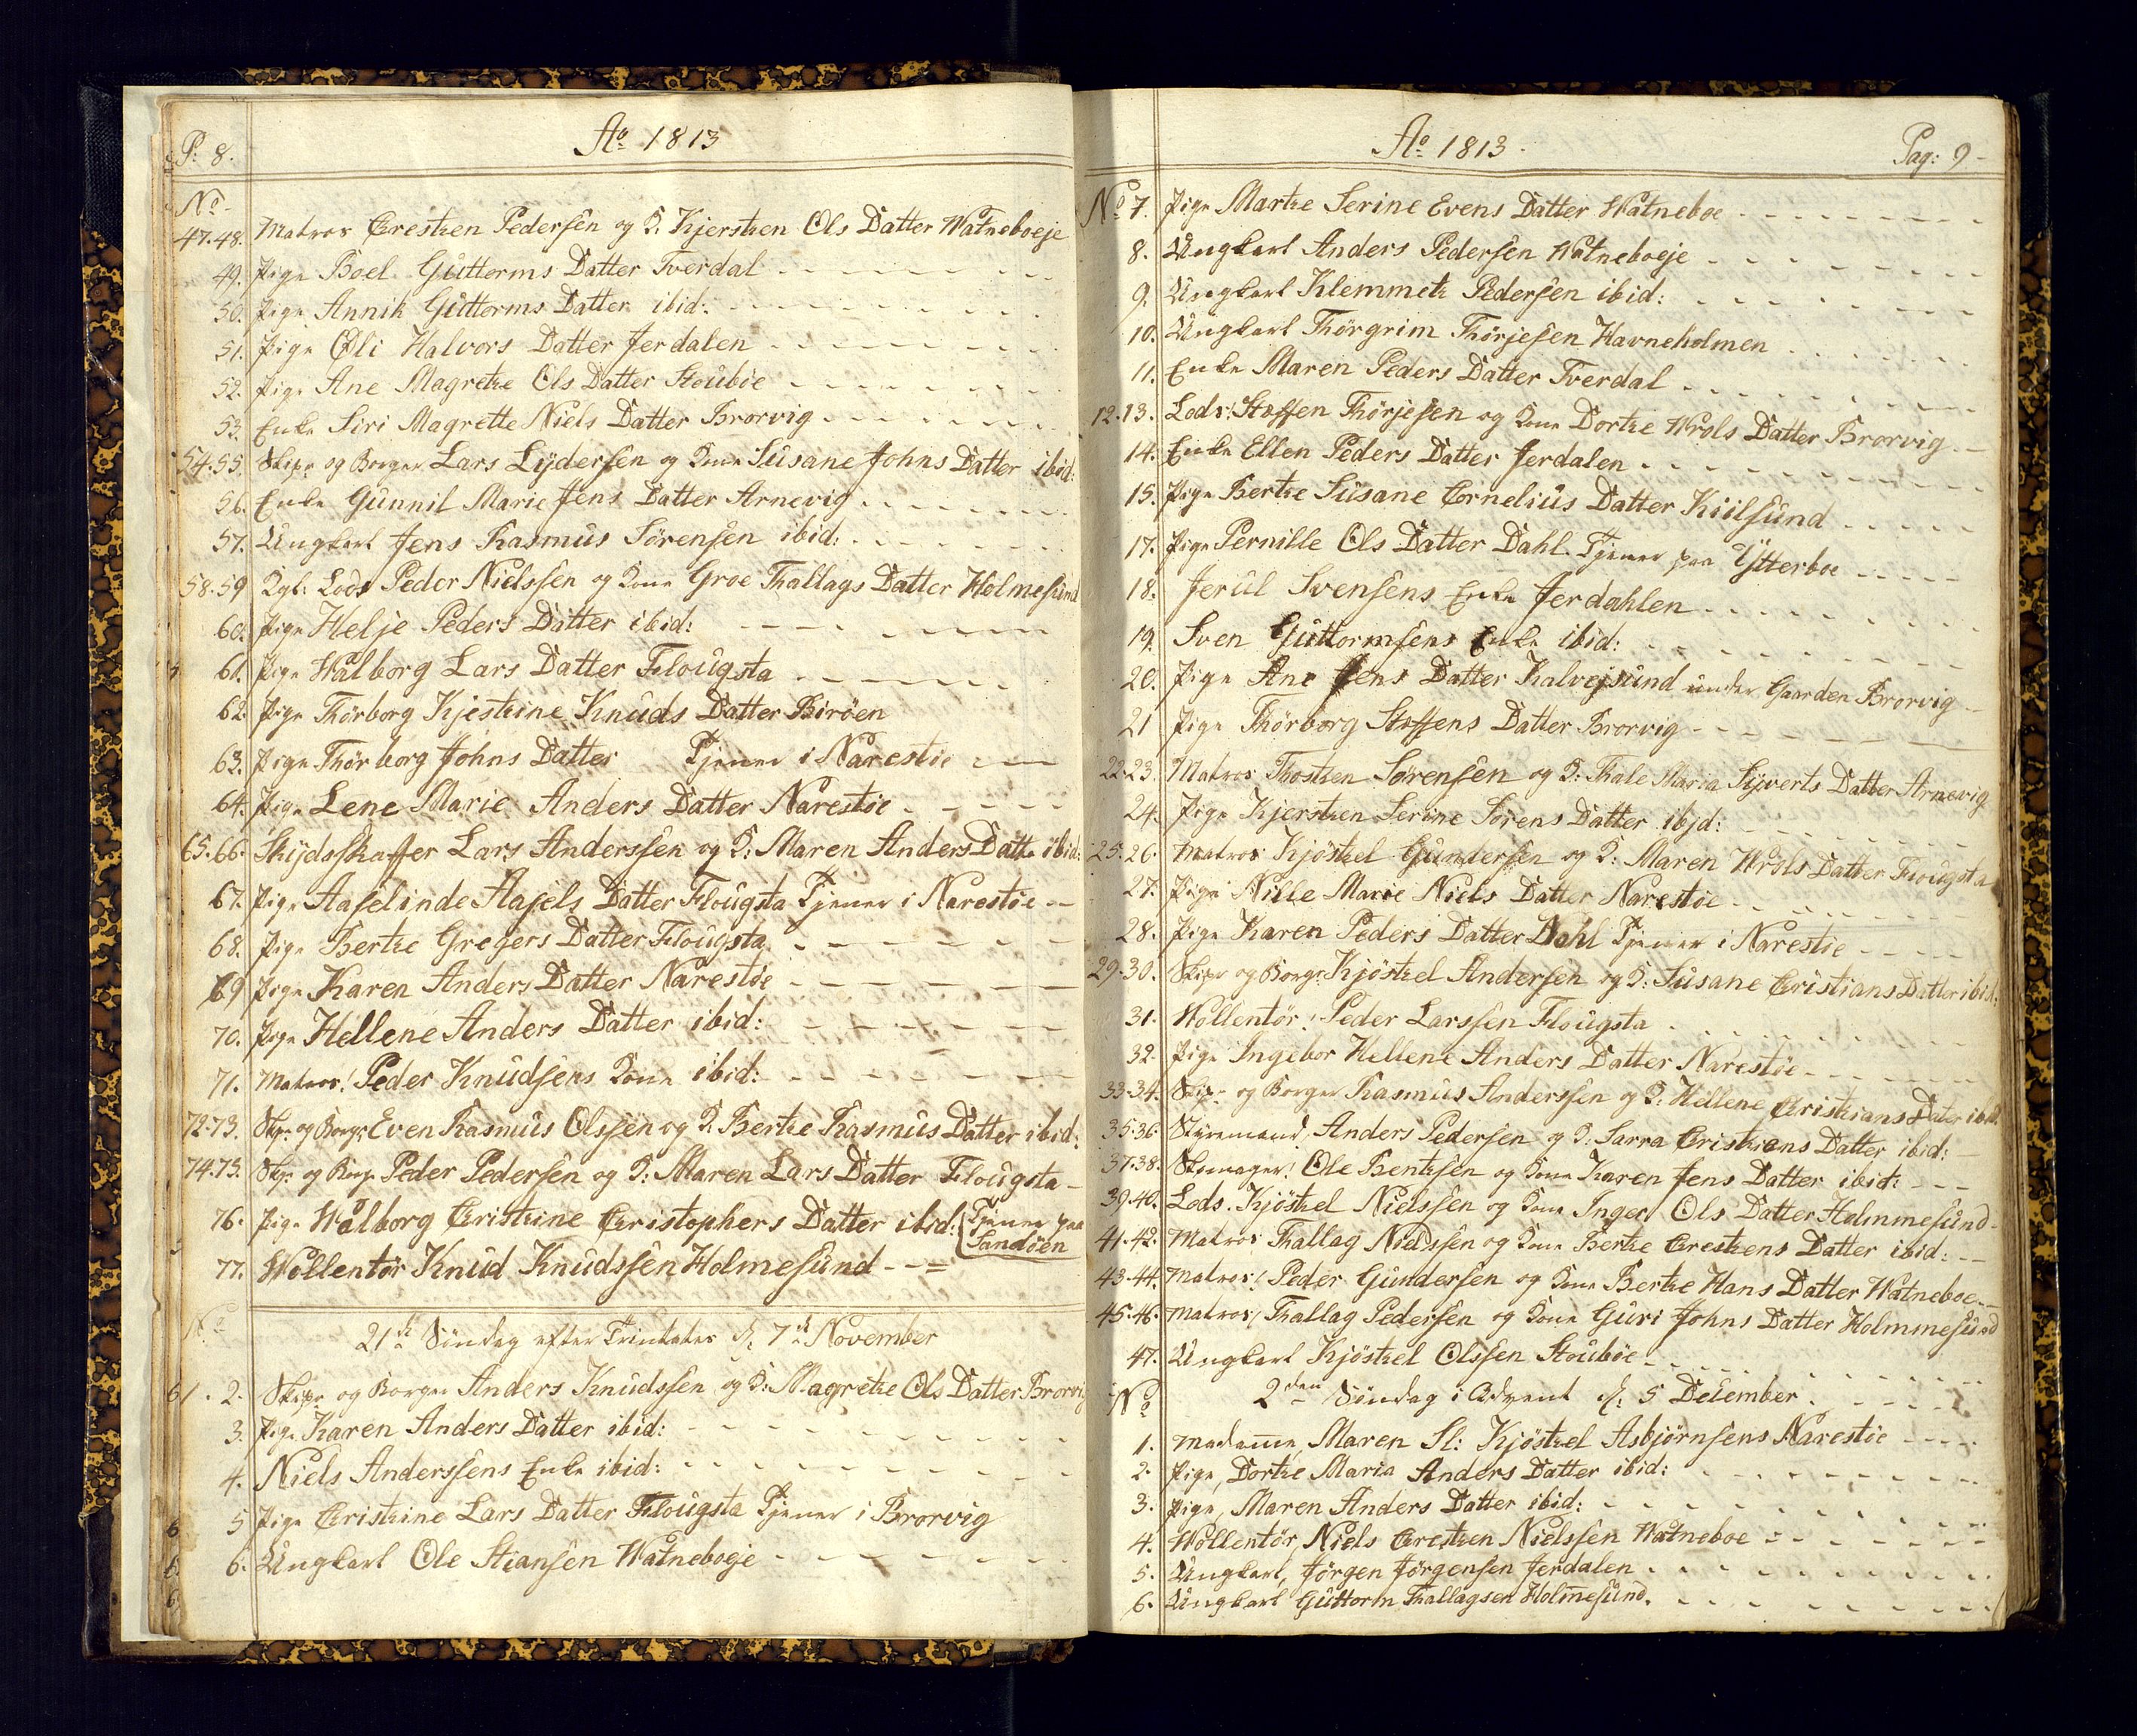 P: 8.
Ao 1813
No
47.48. Matros Crestzen Pedersen og K. Kjerstzen Ols Datter Watneboeje
49. Pige Boel Guttorms Datter Tverdal
50. Pige Annik Guttorms Datter ibid:
51. Pige Oli Halvors Datter Jerdalen
52. Pige Ane Magretze Ols Datter Stoubøe
53. Enke Siri Magrette Niels Datter Brorvig
54.55. Skipr og Borger Lars Lydersen og Kone Susane Johns Datter ibid:
56. Enke Gunnil Marie Jens Datter Arnevig
57. Ungkarl Jens Rasmus Sørensen ibid:
58.59 Kgl: Lods Peder Nielssen og Kone Groe Thallags Datter Holmesund
60. Pige Helje Peders Datter ibid:
61. Pige Walborg Lars Datter Flougsta
62. Pige Thörborg Kjestzine Knuds Datter Biröen
63. Pige Thörborg Johns Datter Tjener i Narestöe
64. Pige Lene Marie Anders Datter Narestøe
65.66. Skydsskaffer Lars Anderssen og K: Maren Anders Datte ibid:
67. Pige Aaselinde Aasels Datter Flougsta Tjener i Narestöe
68. Pige Bertze Gregers Datter Flougsta
69 Pige Karen Anders Datter Narestöe
70. Pige Hellene Anders Datter ibid:
71. Matros! Peder Knudsens Kone ibid:
72.73. Skp: og Borgr Even Rasmus Olssen og K. Bertze Rasmus Datter ibid:
74.75. Skp: og Borgr Peder Pedersen og K: Maren Lars Datter Flougsta
76. Pige Walborg Cristzine Cristophers Datter ibid: Tjener paa
Sandöen
77. Wollentør Knud Knudssen Holmesund
No
21de Söndag efter Trinitates d: 7de November
1. 2. Skipr og Borger Anders Knudssen og K: Magretze Ols Datter Brorvig
3. Pige Karen Anders Datter ibid:
4. Niels Anderssens Enke ibid:
5 Pige Cristzine Lars Datter Flougsta Tjener i Brorvig
6. Ungkarl Ole Stiansen Watneboeje
Ao 1813
Pag: 9
No 7. Pige Martze Serine Evens Datter Watneboe
8. Ungkarl Anders Pedersen Watneboeje
9. Ungkarl Klemmetz Pedersen ibid:
10. Ungkarl Thörgrim Thörjesen Havneholmen
11. Enke Maren Peders Datter Tverdal
12.13. Lods: Steffen Thörjesen og Kone Dortze Wrols Datter Brorvig
14. Enke Ellen Peders Datter Jerdalen
15. Pige Bertze Susane Cornelius Datter Kiilsund
17. Pige Pernille Ols Datter Dahl Tjener paa Ytterboe
18. Jerul Svensens Enke Jerdahlen
19. Sven Guttormsens Enke ibid:
20. Pige Ane Jens Datter Kalvejsund under Gaarden Brorvig
21 Pige Thörborg Steffens Datter Brorvig
22.23. Matros Thostzen Sørensen og K: Thale Maria Syverts Datter Arnevig
24. Pige Kjerstzen Serine Sørens Datter ibid:
25.26. Matros Kjöstzel Gundersen og K: Maren Wrols Datter Flougsta
27. Pige Nille Marie Niels Datter Narestöe
28. Pige Karen Peders Datter Dahl Tjener i Narestöe
29.30. Skipr og Borgr Kjöstzel Andersen og K: Susane Cristians Datter ibid:
31. Wollentör! Peder Larssen Flougsta
32. Pige Ingebor Hellene Anders Datter Narestöe
33.34. Skipr og Borger Rasmus Anderssen og K: Hellene Cristzians Dater ibid:
35.36 Styremand, Anders Pedersen og K: Sarra Cristzians Datter ibid:
37.38. Skomager! Ole Bentzsen og Kone Karen Jens Datter ibid:
39.40. Lods. Kjöstzel Nielssen og Kone Inger Ols Datter Holmmesund
41.42. Matros Thallag Nielssen og Kone Bertze Crestzens Datter ibid:
43.44. Matros! Peder Gundersen og Kone Bertze Hans Datter Watneboe
45.46. Matros! Thallag Pedersen og Kone Guri Johns Datter Holmmesund
47. Ungkarl Kjöstzel Olssen Stouböe
No 2den Söndag i Advent d: 5 December
1. Madamme, Maren Sl: Kjöstzel Asbjörnsens Narestöe
2. Pige, Dortze Maria Anders Datter ibid:
3. Pige, Maren Anders Datter ibid:
4. Wollentör, Niels Crestzen Nielssen Watneboe
5. Ungkarl, Jörgen Jörgensen Jerdalen
6. Ungkarl Guttorm Thallagsen Holmesund.